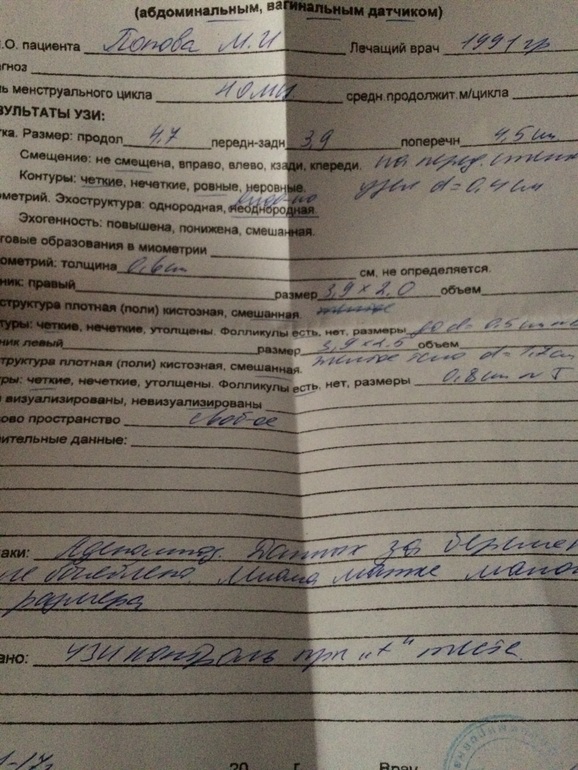 (абдоминальным, вагинальным датчиком)
.О. пациента Попова М.И Лечащий врач 1991 гр
агноз
ь менструального цикла средн.продолжит.м/цикла
ЗУЛЬТАТЫ УЗИ:
тка. Размер: продол 4,7 передн-задн 3,9 поперечн 4,5 см
Смещение: не смещена, вправо, влево, кзади, кпереди. на перед. стенке
Контуры: четкие, нечеткие, ровные, неровные. узел d=0,4 см
ометрий. Эхоструктура: однородная, неоднородная.
Эхогенность: повышена, понижена, смешанная.
говые образования в миометрии
ометрий: толщина 0,6 см см, не определяется.
ник: правый размер 3,9 x 2,0 объем
структура плотная (поли) кистозная, смешанная.
туры: четкие, нечеткие, утолщены. Фолликулы есть, нет, размеры до d= 0,5 см
ник левый размер 3,9 x 2,5 объем
структура плотная (поли) кистозная, смешанная. желтое тело d=
уры: четкие, нечеткие, утолщены. Фолликулы есть, нет, размеры 0,8 см
визуализированы, невизуализированы
ово пространство свобое
ительные данные:
аки: Аденомиоз. Данных за беремен
не выявлено. Миома матки мало
размера
ано: УЗИ контроль при "+" тесте.
20 г. Врач